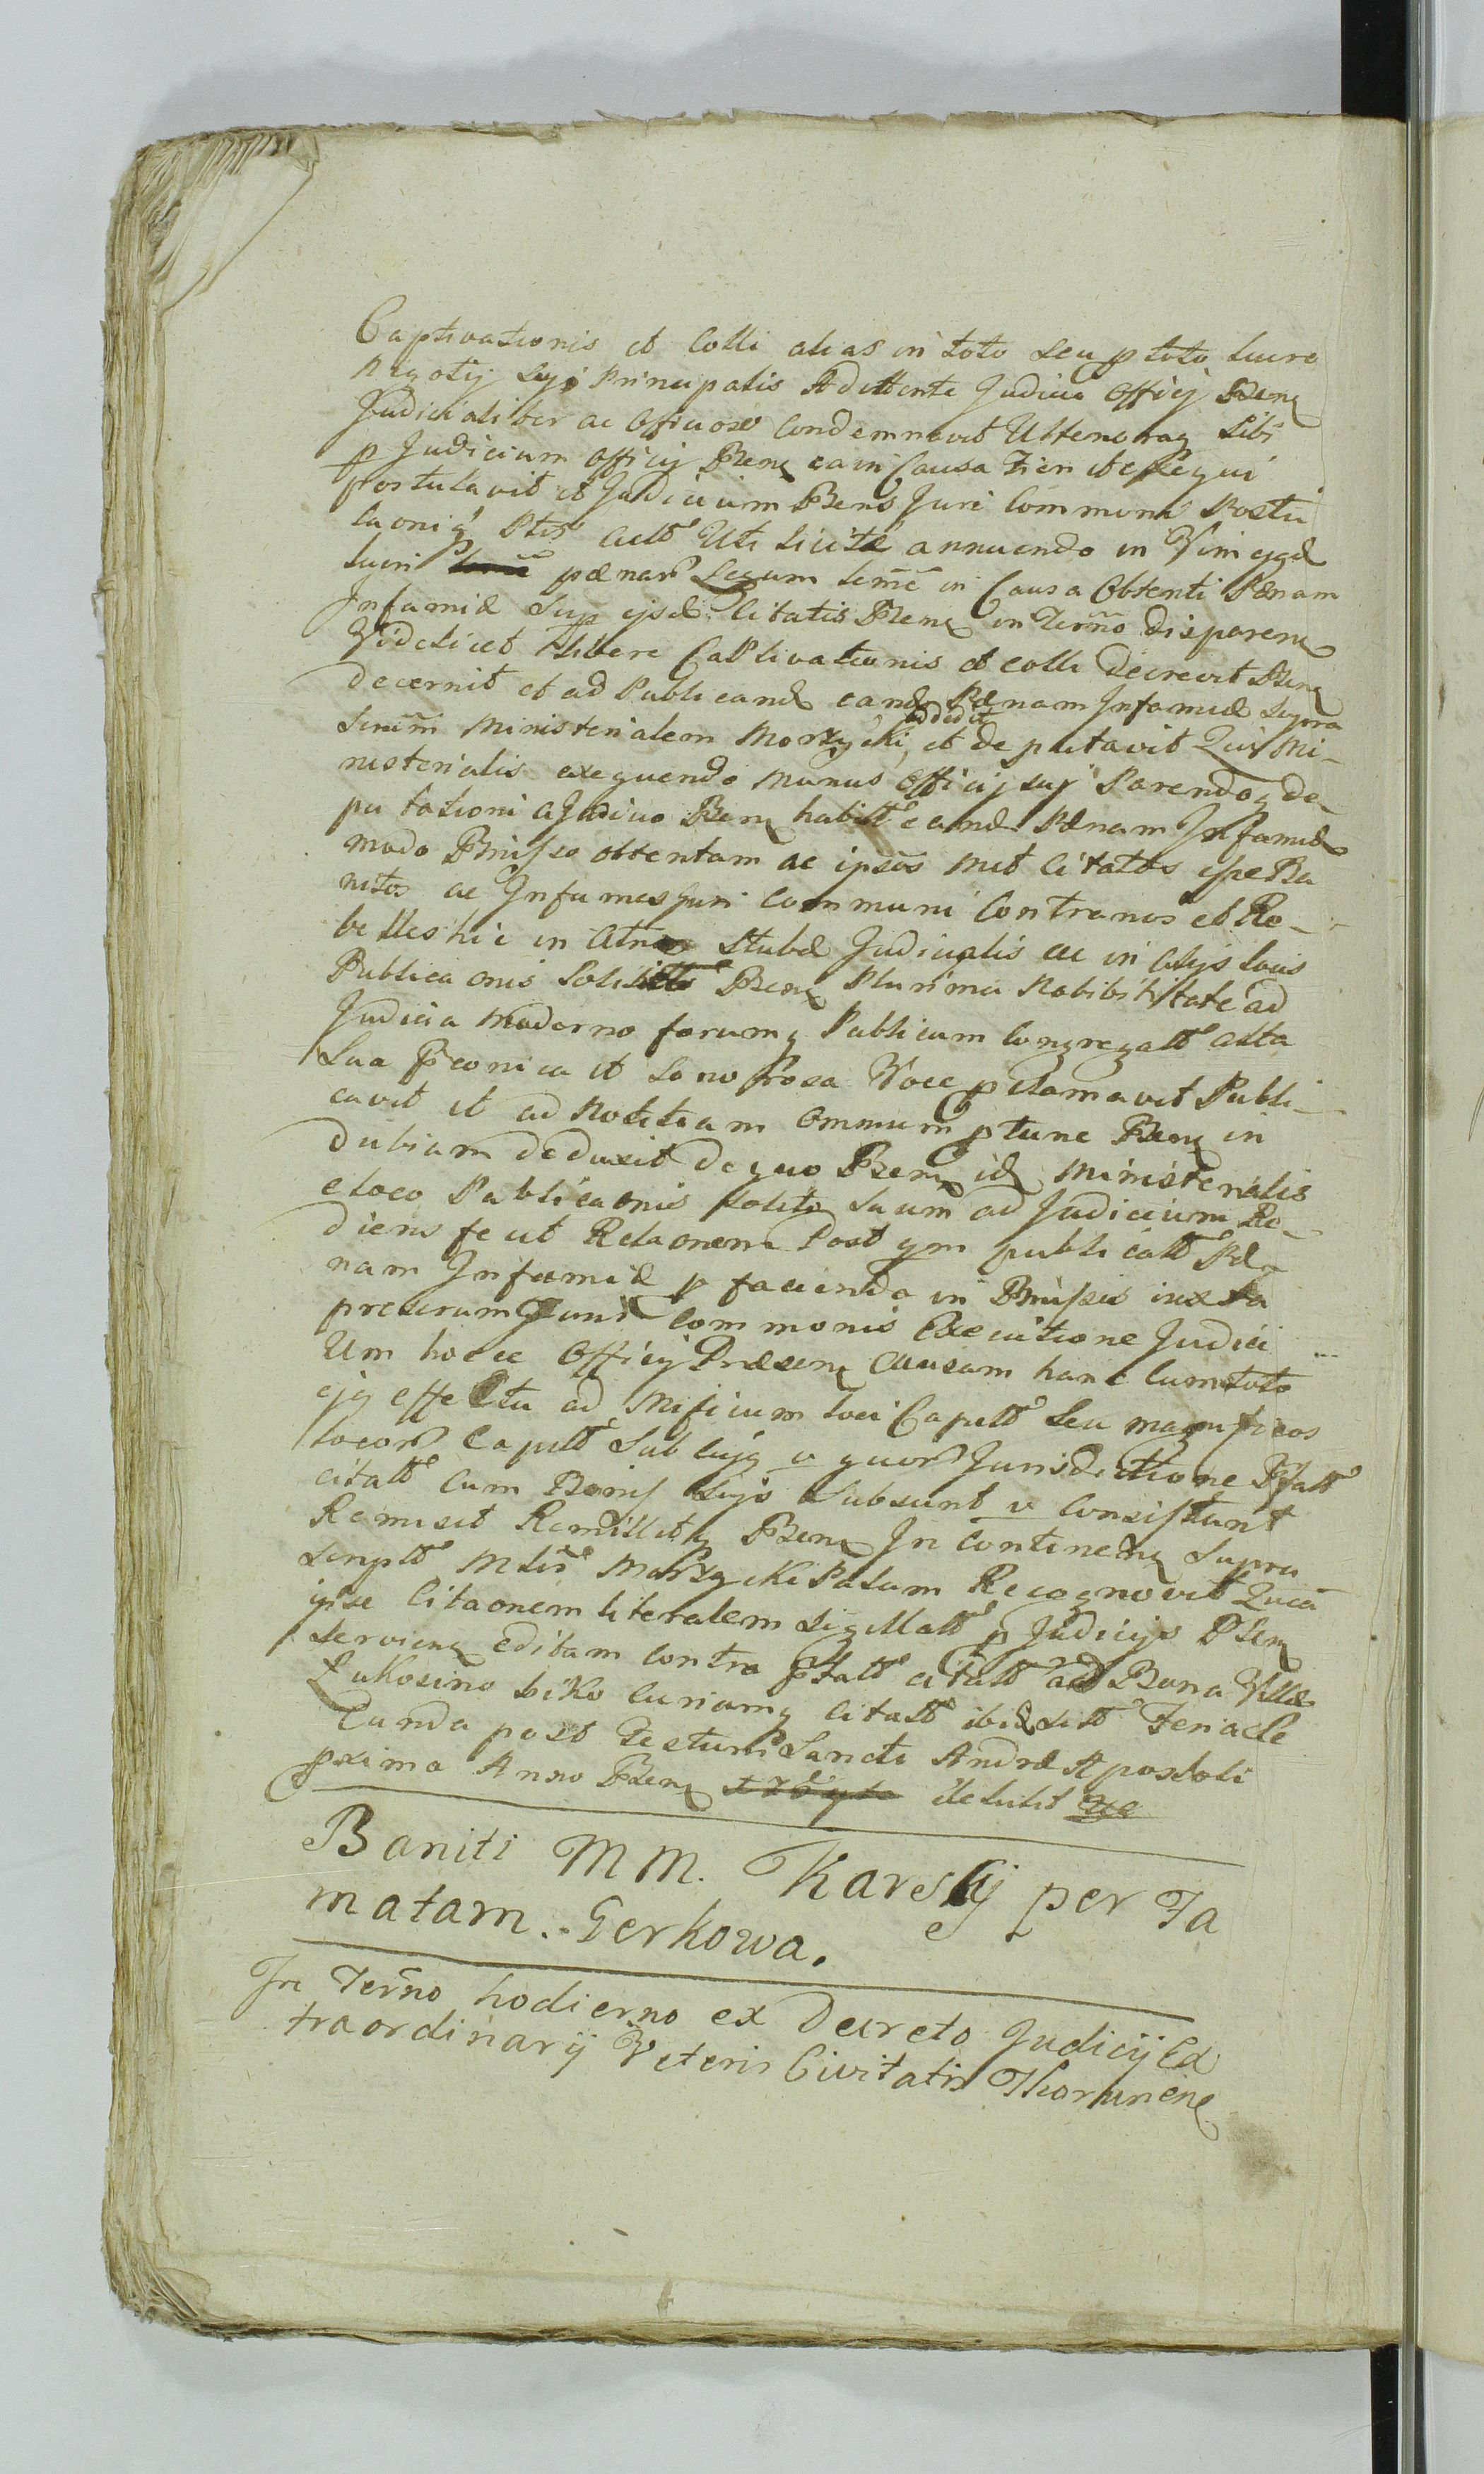 Captivationis et Colli alias in toto seu p toto lucro
Negotij sui Principalis Adittente Judicio Officij Psens
Judicialiter ac Officiose Condemnavit Ulterioraq sibi
p Judicium Officij Psens ea in Causa Fieri et exequi
postulavit et Judicium Psens Juri Communi Postu
laoniq Ptis Actt Uti licitæ annuendo in Vim ejqd
lucri pænar Legum termi in Causa Obtenti Pænam
Infamiæ Sup ejsd Citatis Psens in Termo disparens
Videlicet libere Captivationis et colli decrevit Psens
decernit et ad Publicand eand Pænam Infamiæ supra
Ministerialem Morzycki addidit et deputavit Qui Mi-
nisterialis exequendo munus Officij suj Parendoq de-
putationi a Judicio Psens habitt eand Pænam Infamiæ
modo Pmisso obtentam ac ipsos met Citatos esse Ba
nitos ac Infames Juri Communi Contrarios et Re-
belles hic in Atrio Stubæ Judicialis ac in alijs locis
Publicaonis Solitt Psens Plurima Nobilitate ad
Judicia moderno forumq Publicum Congregatt asta
Sua Pconica et sonorosa Voce pclamavit Publi-
cavit et ad Notitiam Omnium ptunc Psens in
dubiam deduxit de quo Psens id Ministerialis
e loco Publicaonis solito suum ad Judicium Re-
diens fecit Relaonem Post qm publicatt Pæ-
nam Infamiæ p facienda in Pmissis iuxta
prescriptum Juris Commonis Executione Judici
Um hocce Officij Præsens Causam hanc Cum toto
ejq effectu ad Mificum loci Capitt Seu magnificos
locor Capitt Sub cujq v quor Jurisdictione Pfatt
citatt Cum Bonis Suis Subsunt v Consistunt
Remisit Remittitq Psens In Continenti Supra
scriptt Mstr Morzycki Palam Recognovit Quia
ipse Citaonem literalem Sigillatt p Judicijs Psens
serviens editam Contra Pfatt citatt ad Bona Villæ
Łukosino Biko Curiamq Citatt ibid sitt Feria Se
cunda post Festum Sancti Andreæ Apostoli
pxima Anno Psens detulit
Baniti MM. Karskij per Fa
matam. Gerkowa.
In Termo hodierno ex Decreto Judicij Ex
traordinarij Veteris Civitatis Thorunens